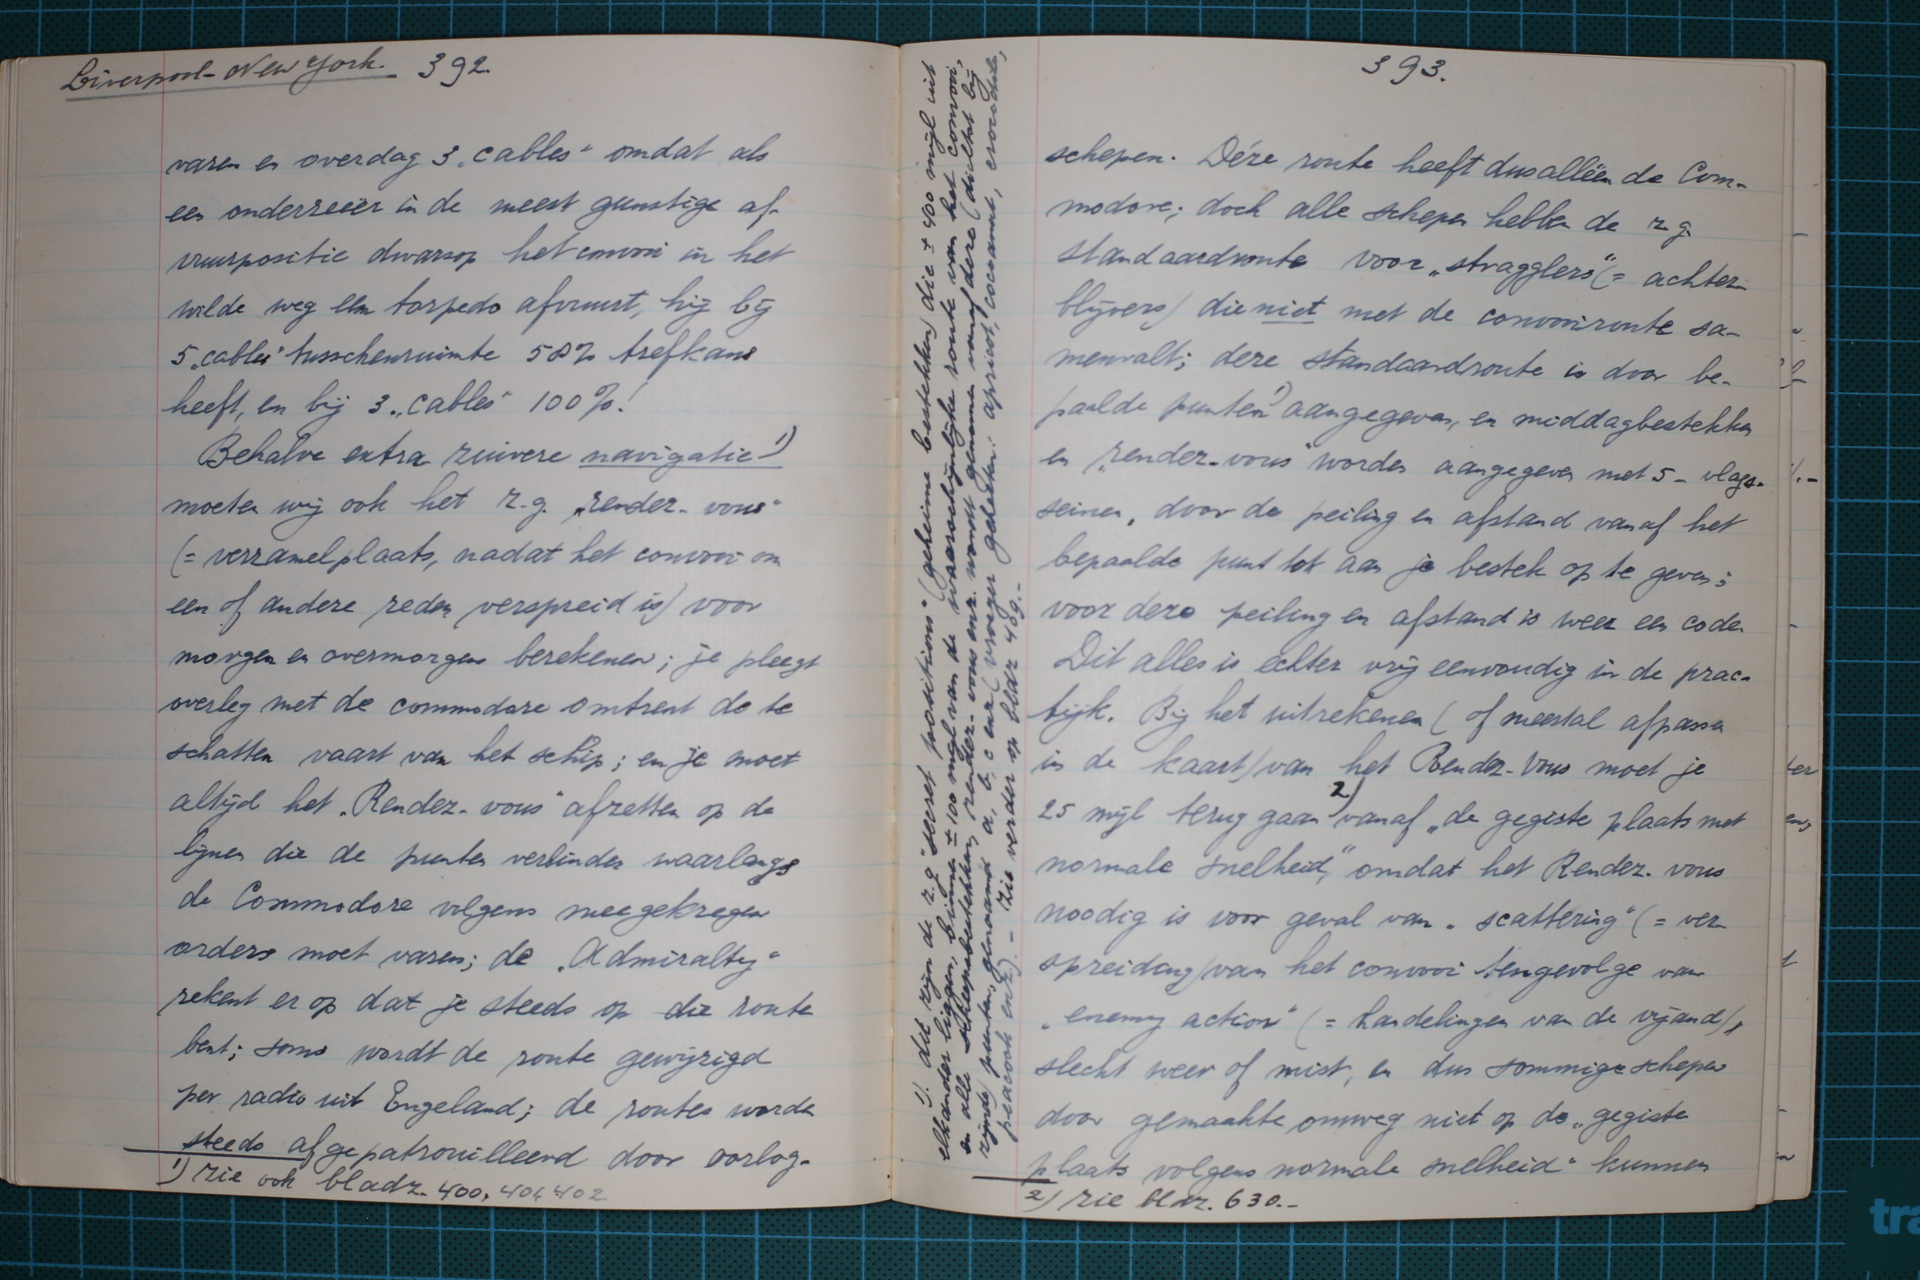 Liverpool - New York. 392.
varen en overdag 3 „cables" omdat als
een onderzeeër in de meest gunstige af-
vuurpositie dwarsop het convooi in het
wilde weg een torpedo afvuurt, hij bij
5 „cables" tusschenruimte 58% trefkans
heeft, en bij 3 „cables" 100%!
Behalve extra zuivere navigatie 1)
moeten wij ook het z.g. „rendez-vous"
(= verzamelplaats, nadat het convooi om
een of andere reden verspreid is) voor
morgen en overmorgen berekenen; je pleegt
overleg met de commodore omtrent de te
schatten vaart van het schip; en je moet
altijd het „Rendez-vous" afzetten op de
lijnen die de punten verbinden waarlangs
de Commodore volgens meegekregen
orders moet varen; de „Admiralty"
rekent er op dat je steeds op die route
bent; soms wordt de route gewijzigd
per radio uit Engeland; de routes worden
steeds afgepatrouilleerd door oorlog-
1) zie ook bladz. 400, 401, 402
1). dit zijn de z.g. "secret positions" (geheime bestekken) die ± 400 mijl uit
elkander liggen, binnen ± 100 mijl van de waarschijnlijke route van het convooi,
en alle scheepsbestekken, rendez-vous enz. wordt genomen vanaf deze (dichtst bij
zijnde) punten, genaamd a, b, c enz (vroeger geheeten: apricot, cocoanut, crocodile,
peacock enz.) - zie verder op bladz 409.-
393.
schepen. Déze route heeft dus alléén de Com-
modore; doch alle schepen hebben de z.g.
standaardroute voor „stragglers" (= achter-
blijvers) die niet met de convooiroute sa-
menvalt; deze standaardroute is door be-
paalde punten 1) aangegeven, en middagbestekken
en „rendez-vous" worden aangegeven met 5-vlags-
seinen, door de peiling en afstand vanaf het
bepaalde punt tot aan je bestek op te geven;
voor deze peiling en afstand is weer een code.
Dit alles is echter vrij eenvoudig in de prac-
tijk. Bij het uitrekenen (of meestal afpassen
in de kaart) van het Rendez-Vous moet je
25 mijl terug gaan 2) vanaf „de gegiste plaats met
normale snelheid", omdat het Rendez-vous
noodig is voor geval van „scattering" (= ver-
spreiding) van het convooi tengevolge van
„enemy action" (= handelingen van de vijand),
slecht weer of mist, en dus sommige schepen
door gemaakte omweg niet op de „gegiste
plaats volgens normale snelheid" kunnen
2) zie bladz. 630.-